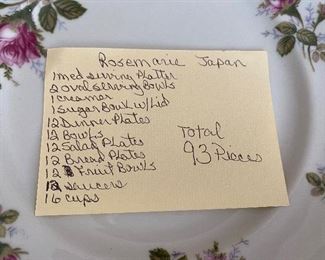 Rosemarie Japan
1 med serving Platter
2 oval serving Bowls
1 creamer
1 sugar Bowl w/Lid
12 Dinner Plates
12 Bowls
12 Salad Plates
12 Bread Plates
12 Fruit Bowls
12 saucers
16 cups
Total
93 Pieces